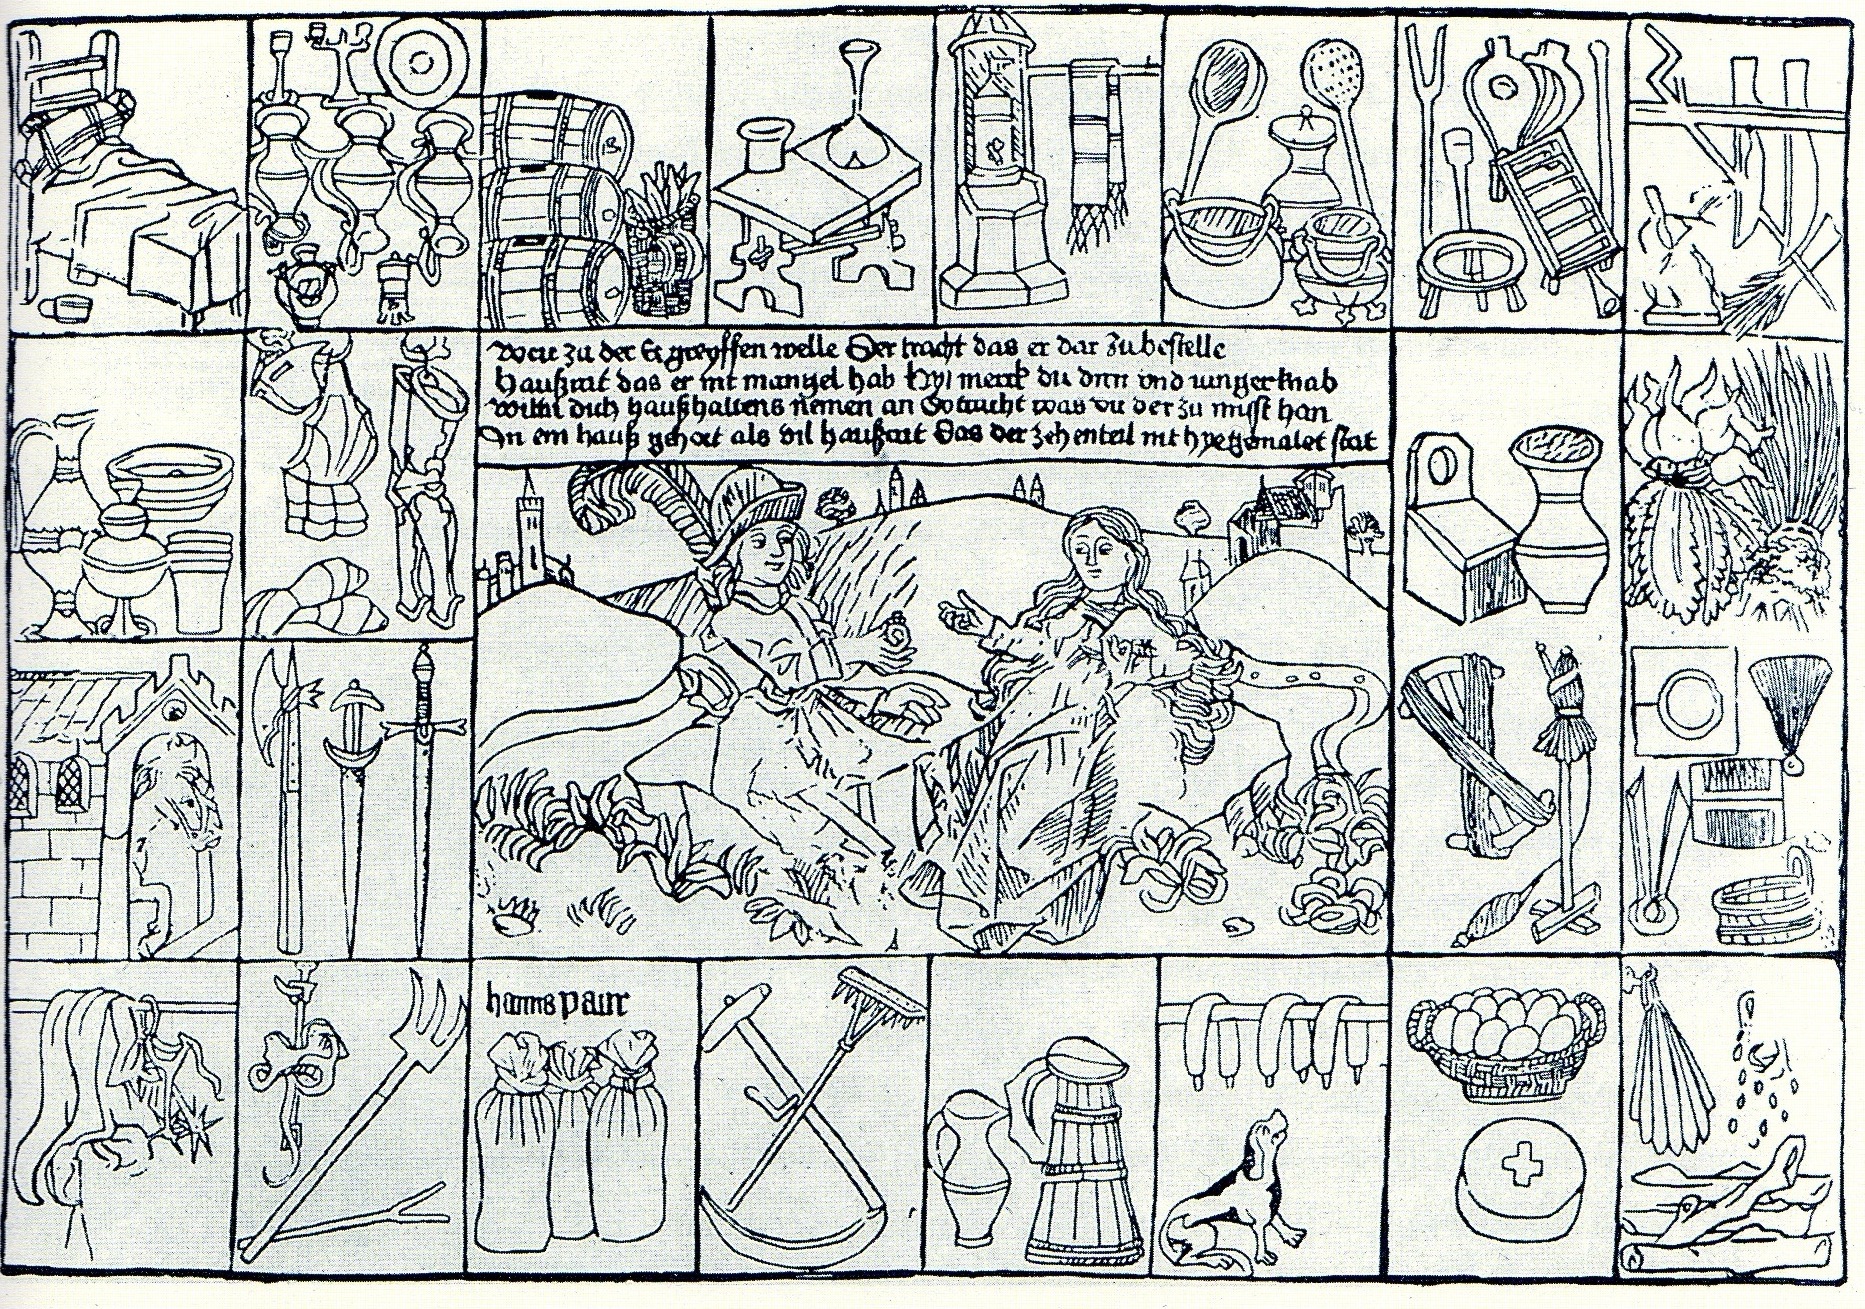 Wer zu der Ee greyffen welle Der tracht das er dar zu bestelle
Haußrat das er nit mangel hab Hyi merck du dirn und iunger knab
Wiltu dich haußhaltens nemen an So tracht was du der zu must han
In ein hauß gehort als vil haußrat Das der zehenteil nit hye gemalet stat
hanns paur